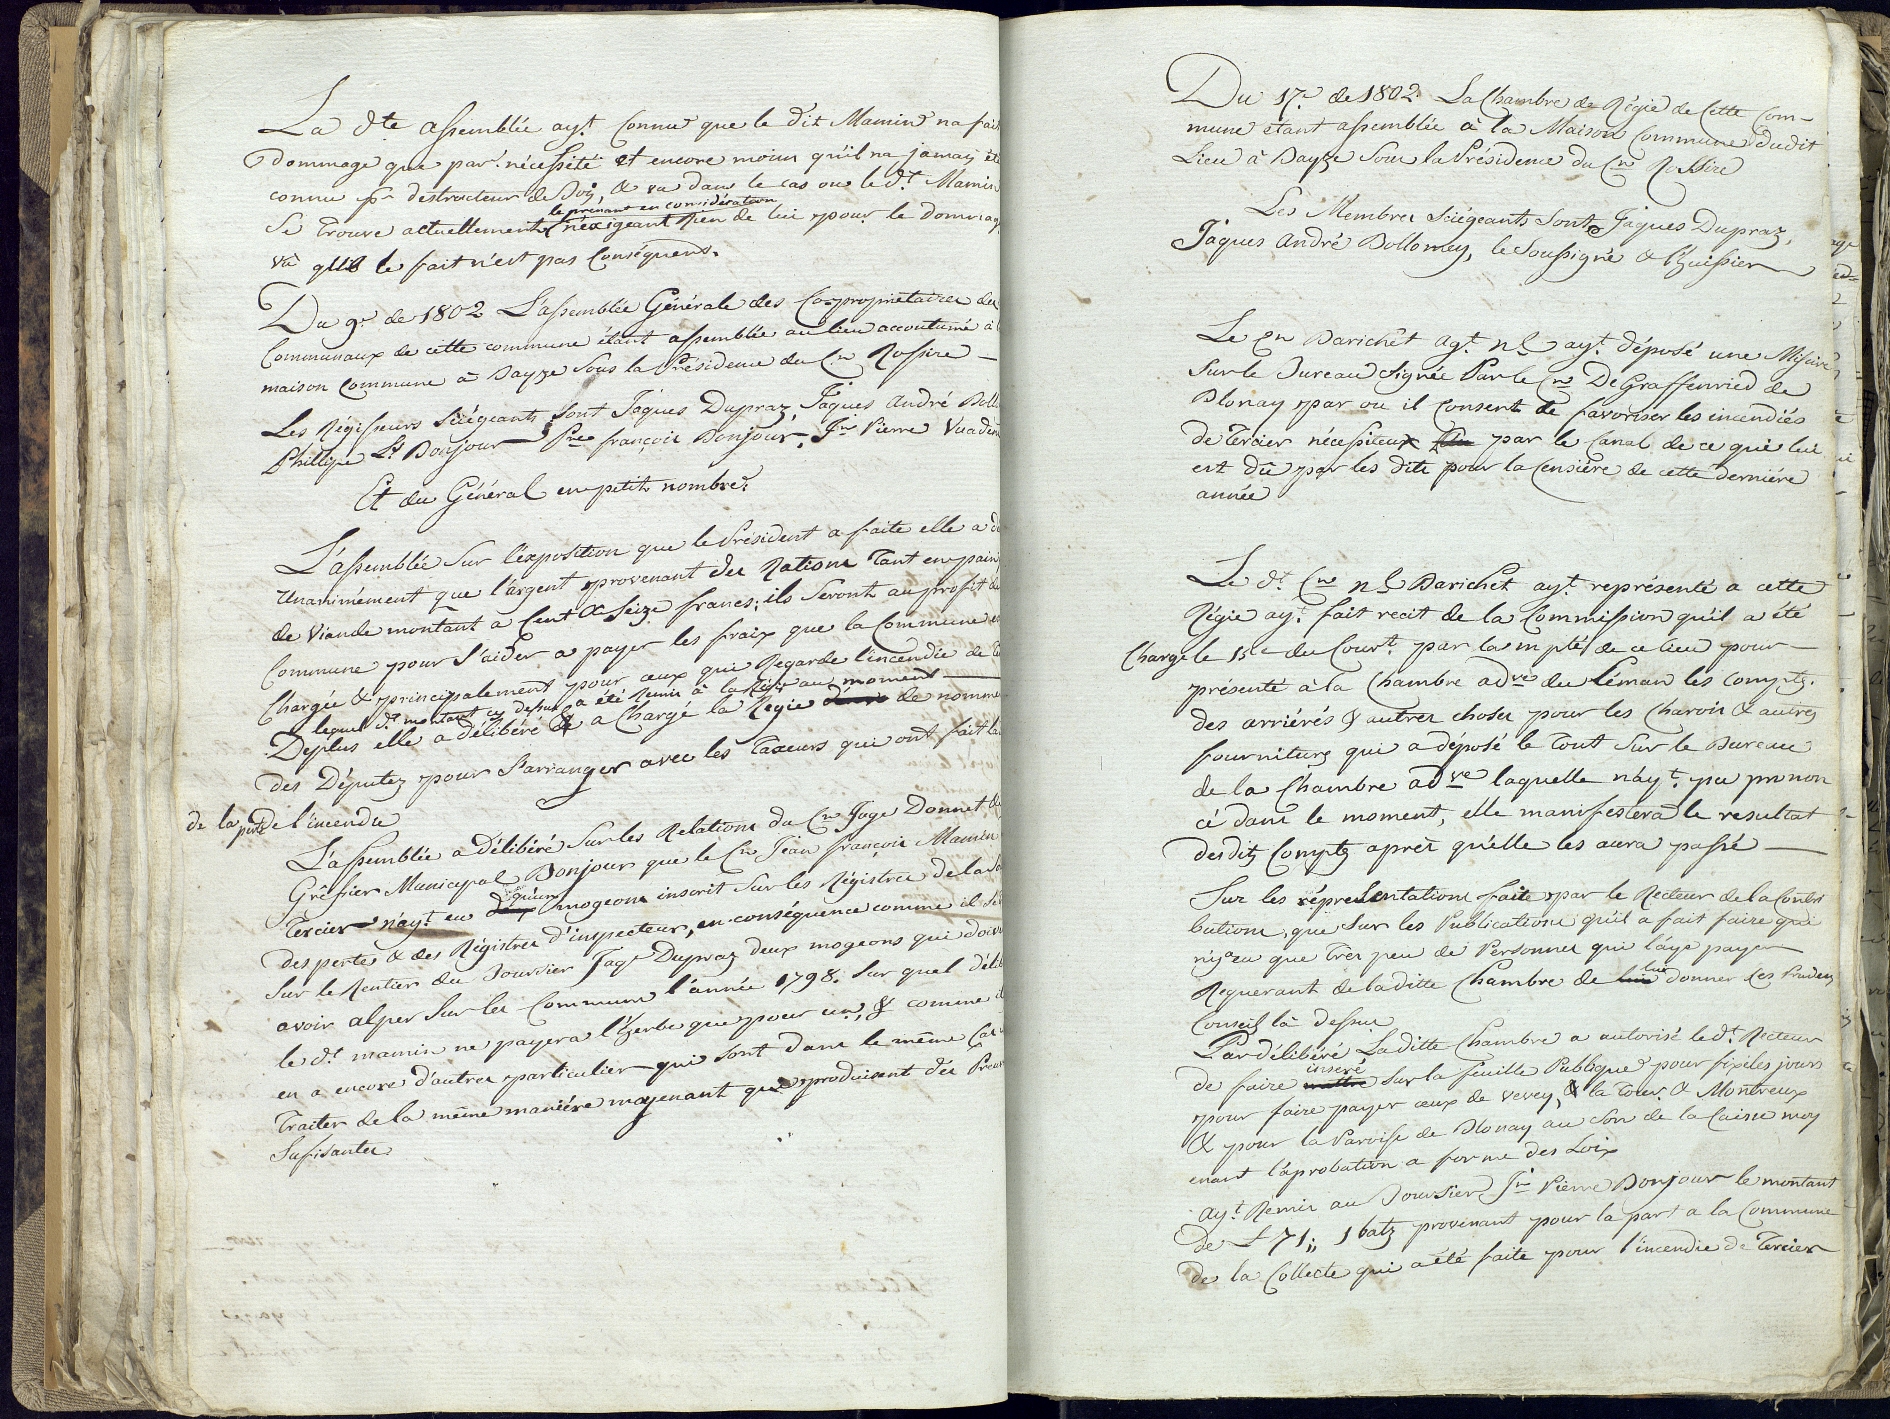 La dte assemblée ayt. Connu que le dit Mamin na fait
dommage que par nécessité et encore moins qu'il na jamais été
connu pr. destructeur de Bois, & va dans le cas ou le dt. Mamin
Se Trouve actuellement le prenant en considération n'éxigeant Rien de lui pour le dommage
vû qu'il le fait n'est pas Conséquens.
Du 9e. de 1802 L'assemblée Générale des Co=propriétaires des
Communaux de cette commune étant assemblée au lieu accoutumé à
maison Commune à Bayze Sous la Présidence du Cn Rossire —
Les Régisseurs Siégeants sont Jaques Dupraz, Jaques André Boll
Phillipe Ls. Bonjour Pre françois Bonjour, Jn Pierre Vuadens
Et du Général en petit nombre.
L'assemblée Sur l'éxposition que le Président a faite elle a dé
Unanimément que l'argent provenant des Rations Tant en pain
de Viande montant a Cent & Seize francs; ils Seront au profit de
Commune pour S'aider a payer les fraix que la Commune
Chargée & principalement pour ceux qui Regarde l'incendie de
lequel dt. montant cy dessus a été Remis à la Régie au moment
Deplus elle a délibéré & a Chargé la Régie de nommer
des Députez pour S'arranger avec les Taxeurs qui ont fait la
de la perte de l'incendie
L'assemblée a délibéré Sur les Relations du Cn Juge Donnet, &
Gréffier Municipal Bonjour que le Cn Jean françois Mamin
Tercier n'ayt. eu qu'un mogeons inscrit Sur les Régistres de la
des pertes & des Régistres d'inspecteur, en conséquence comme il
Sur le Rentier du Boursier Jaqe Dupraz deux mogeons qui doiv
avoir alper Sur les Communs l'année 1798. Sur quel délib
le dt. mamin ne payera l'herbe que pour un, & comme il
en a encore d'autres particulier qui sont dans le même Cas
Traiter de la même maniére moyenant que produisent des Preuv
Sufisantes
Du 17e. de 1802. La Chambre de Régie de Cette Com=
mune étant assemblée à la Maison Commune dudit
Lieu à Bayze Sous la Présidence du Cn Rossire
Les Membres Siégeants Sont Jaques Dupraz,
Jaques André Bollomey, le Soussigné & l'huissier
Le Cn Barichet agt. nl ayt. déposé une Missive
Sur le Bureau Signée Par le Cn De Graffenried de
Blonay par ou il Consent de favoriser les incendiés
de Tercier nécessiteux par le Canal de ce qui lui
est dû par les dits pour la Censiére de cette derniére
année
Le dt. Cn nl Barichet ayt. représenté a cette
Régie ayt. fait recit de la Commission qu'il a été
Chargé le 15e du Court. par la mpté de ce lieu pour
présenté à la Chambre adve du Léman les Comptz.
des arriérés & autres choses pour les Charois & autres
fournitures qui a déposé le Tout Sur le Bureau
de la Chambre adve laquelle n'ayt. pu pronon
cé dans le moment, elle manifestera le resultat
desdits Comptz après qu'elle les aura passé —
Sur les réprésentations faite par le Recteur de la Contri
bution, que Sur les Publications qu'il a fait faire que
ny a eu que Tres peu de Personnes qui l'aye payer
Requerant de laditte Chambre de lui donner ces Prudens
Conseils là dessus
Par délibéré Laditte Chambre a autorisé le dt. Recteur
de faire inseré Sur la feuille Publique pour fixé les jours
pour faire payer ceux de vevey, & la Tour & Montreux
& pour la Paroisse de Blonay au Son de la Caisse moy
enant l'aprobation a forme des Loix
ayt. Remis au Boursier Jn Pierre Bonjour le montant
de L 71,, 1 batz provenant pour la part a la Commune
de la Collecte qui a été faite pour l'incendie de Tercier